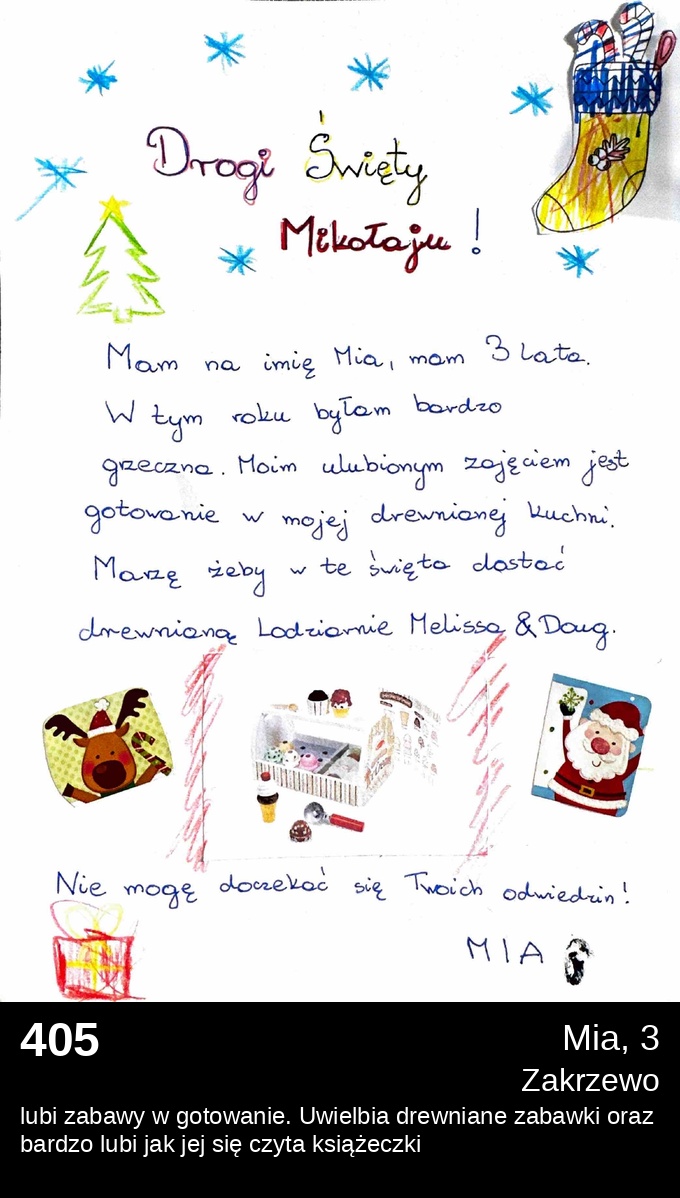 Drogi Święty
Mikołaju !
Mam na imię Mia, mam 3 lata.
W tym roku byłam bardzo
grzeczna. Moim ulubionym zajęciem jest
gotowanie w mojej drewnianej kuchni.
Marzę żeby w te święta dostać
drewnianą Lodziarnie Melissa & Doug.
Nie mogę doczekać się Twoich odwiedzin!
MIA
405
Mia, 3
Zakrzewo
lubi zabawy w gotowanie. Uwielbia drewniane zabawki oraz
bardzo lubi jak jej się czyta książeczki